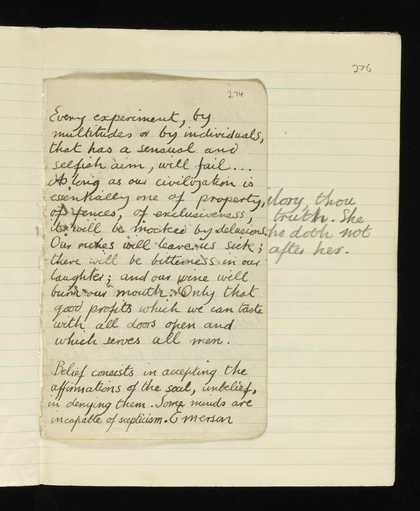 276
274
Every experiment, by
multitudes or by individuals,
that has a sensual and
selfish aim, will fail....
As long as our civilization is
essentially one of property,
of fences, of exclusiveness,
it will be mocked by delusions.
Our riches will leave us sick;
there will be bitterness in our
laughter; and our wine will
burn our mouth. Only that
good profits which we can taste
with all doors open and
which serves all men.
Belief consists in accepting the
affirmations of the soul, unbelief,
in denying them. Some minds are
incapable of scepticism. Emerson
glory, thou
truth. She
he doth not
after her.